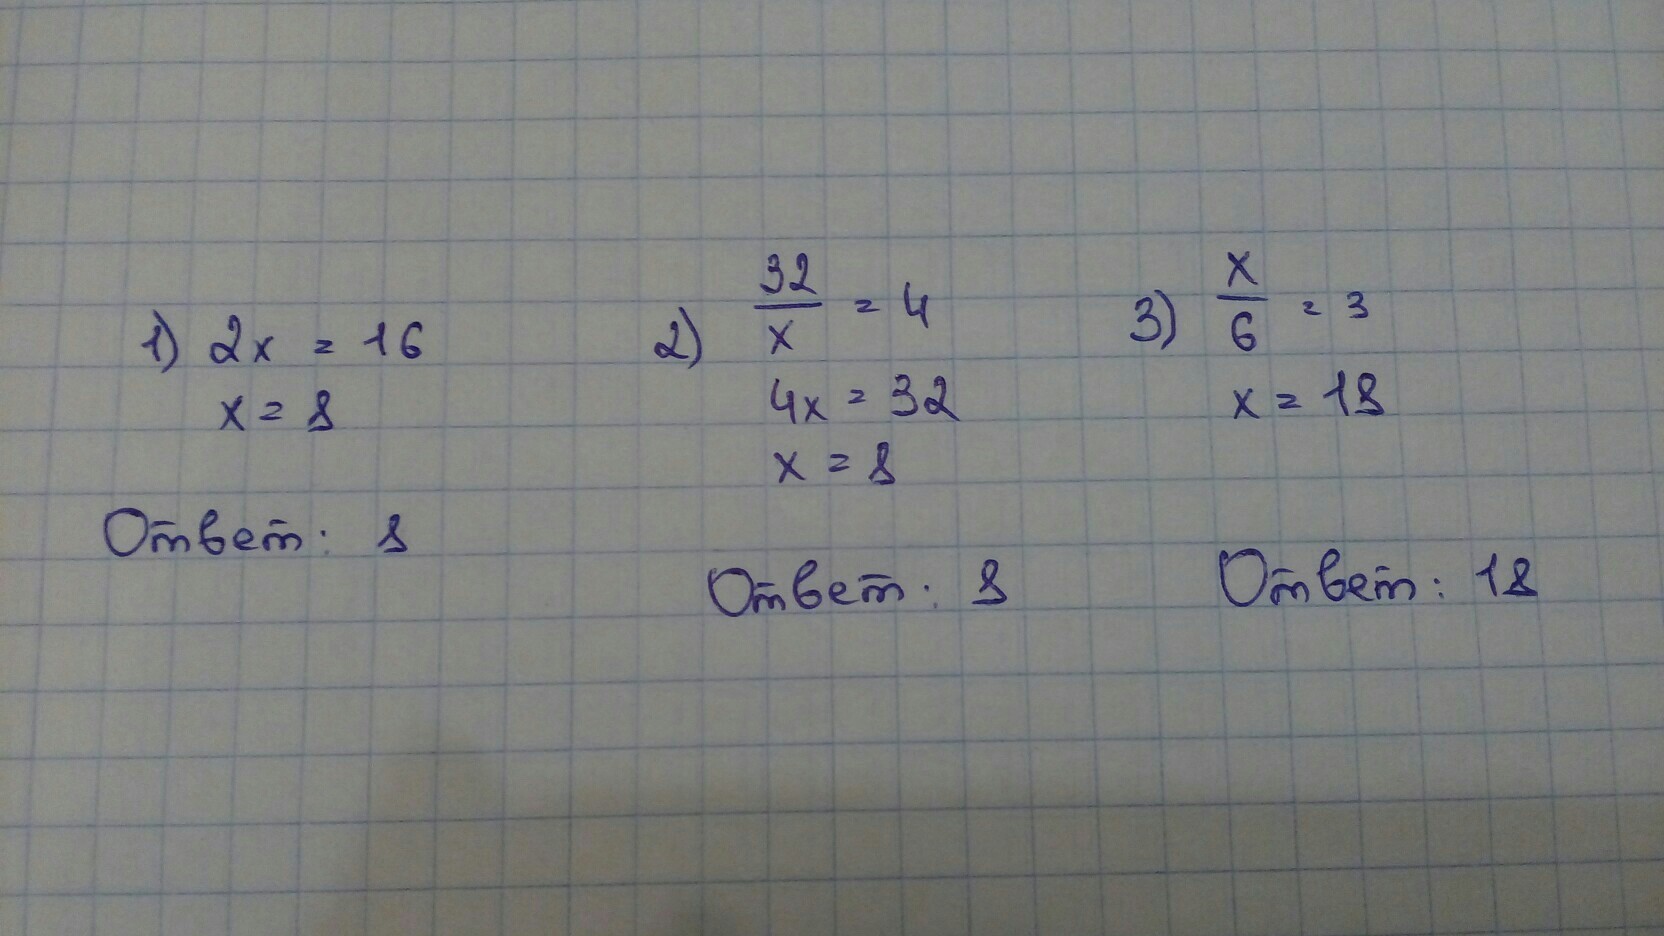 1) 2x = 16
x = 8
Ответ: 8
2) 32/x = 4
4x = 32
x = 8
Ответ: 8
3) x/6 = 3
x = 18
Ответ: 18